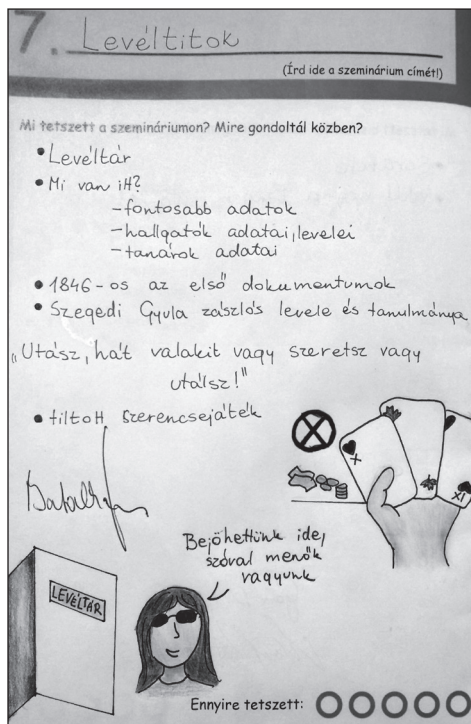 7. Levéltitok
(Írd ide a szeminárium címét!)
Mi tetszett a szemináriumon? Mire gondoltál közben?
• Levéltár
• Mi van itt?
-fontosabb adatok
-hallgatók adatai, levelei
-tanárok adatai
• 1846-os az első dokumentumok
• Szegedi Gyula zászlós levele és tanulmánya
„Utász, hát valakit vagy szeretsz vagy
utálsz!"
• tiltott szerencsejáték
X
XI
Bejöhettünk ide,
szóval menők
vagyunk
LEVÉLTÁR
Ennyire tetszett: